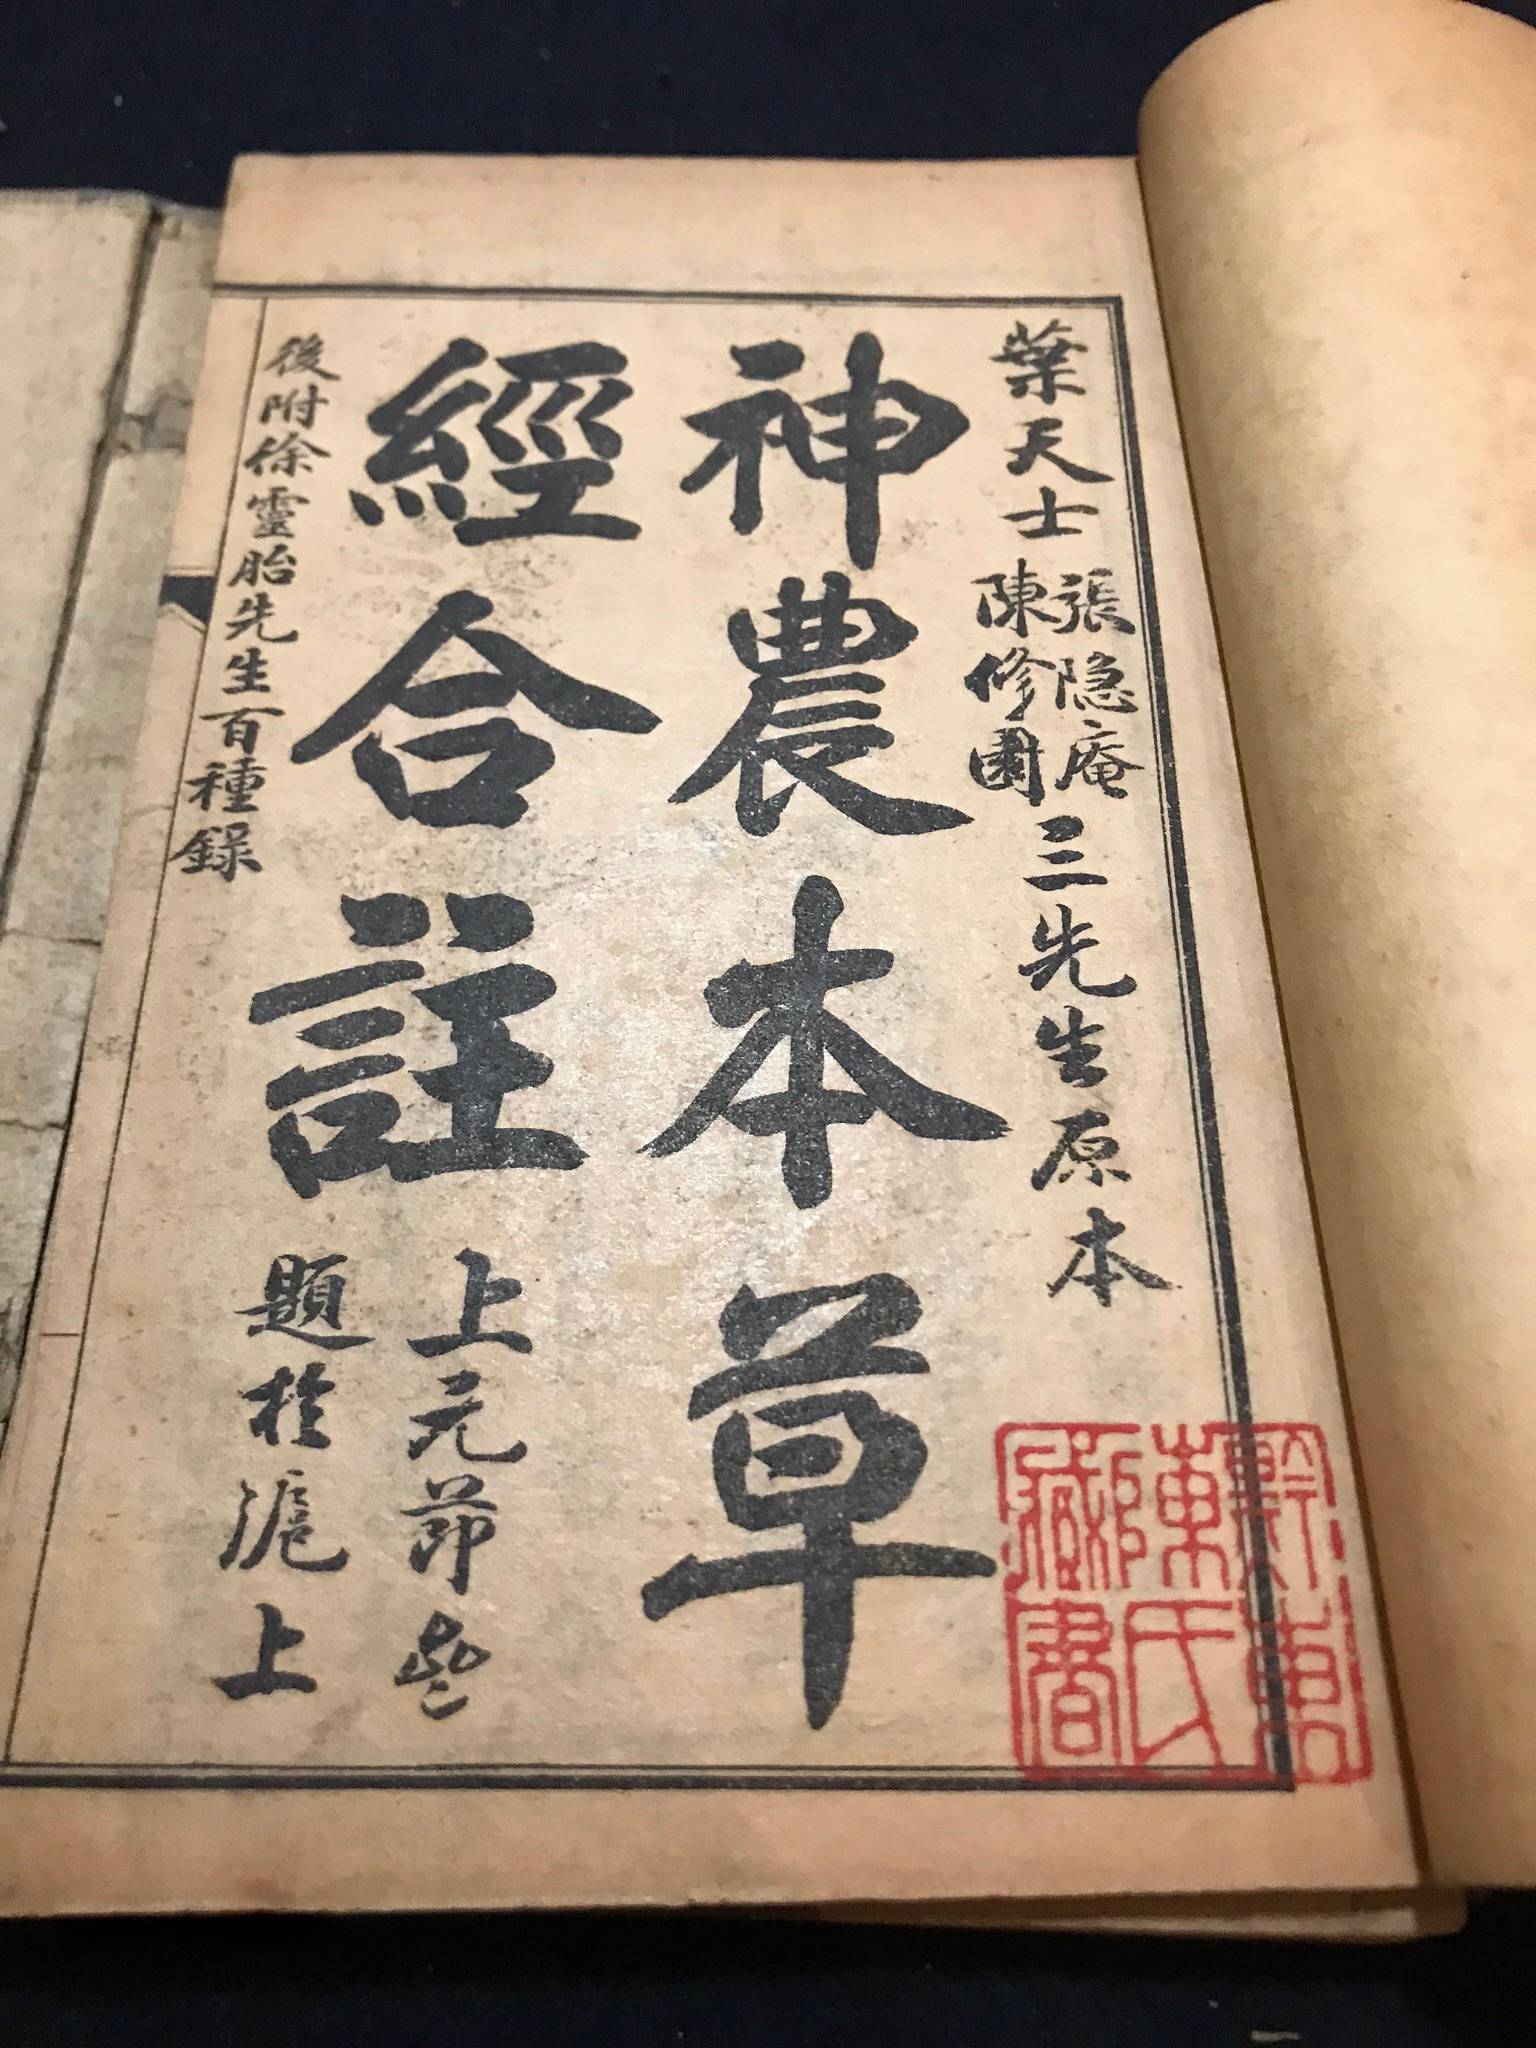 葉天士張隐庵陳修園三先生原本
神農本草
經合註
上元莭些
題於滬上
後附徐靈胎先生百種録
黔東
陳氏
臧書